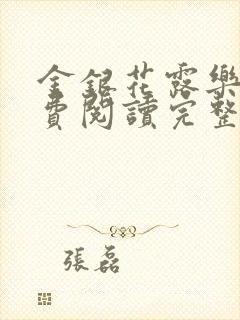 金銀花露樂
費閱讀完整
張磊